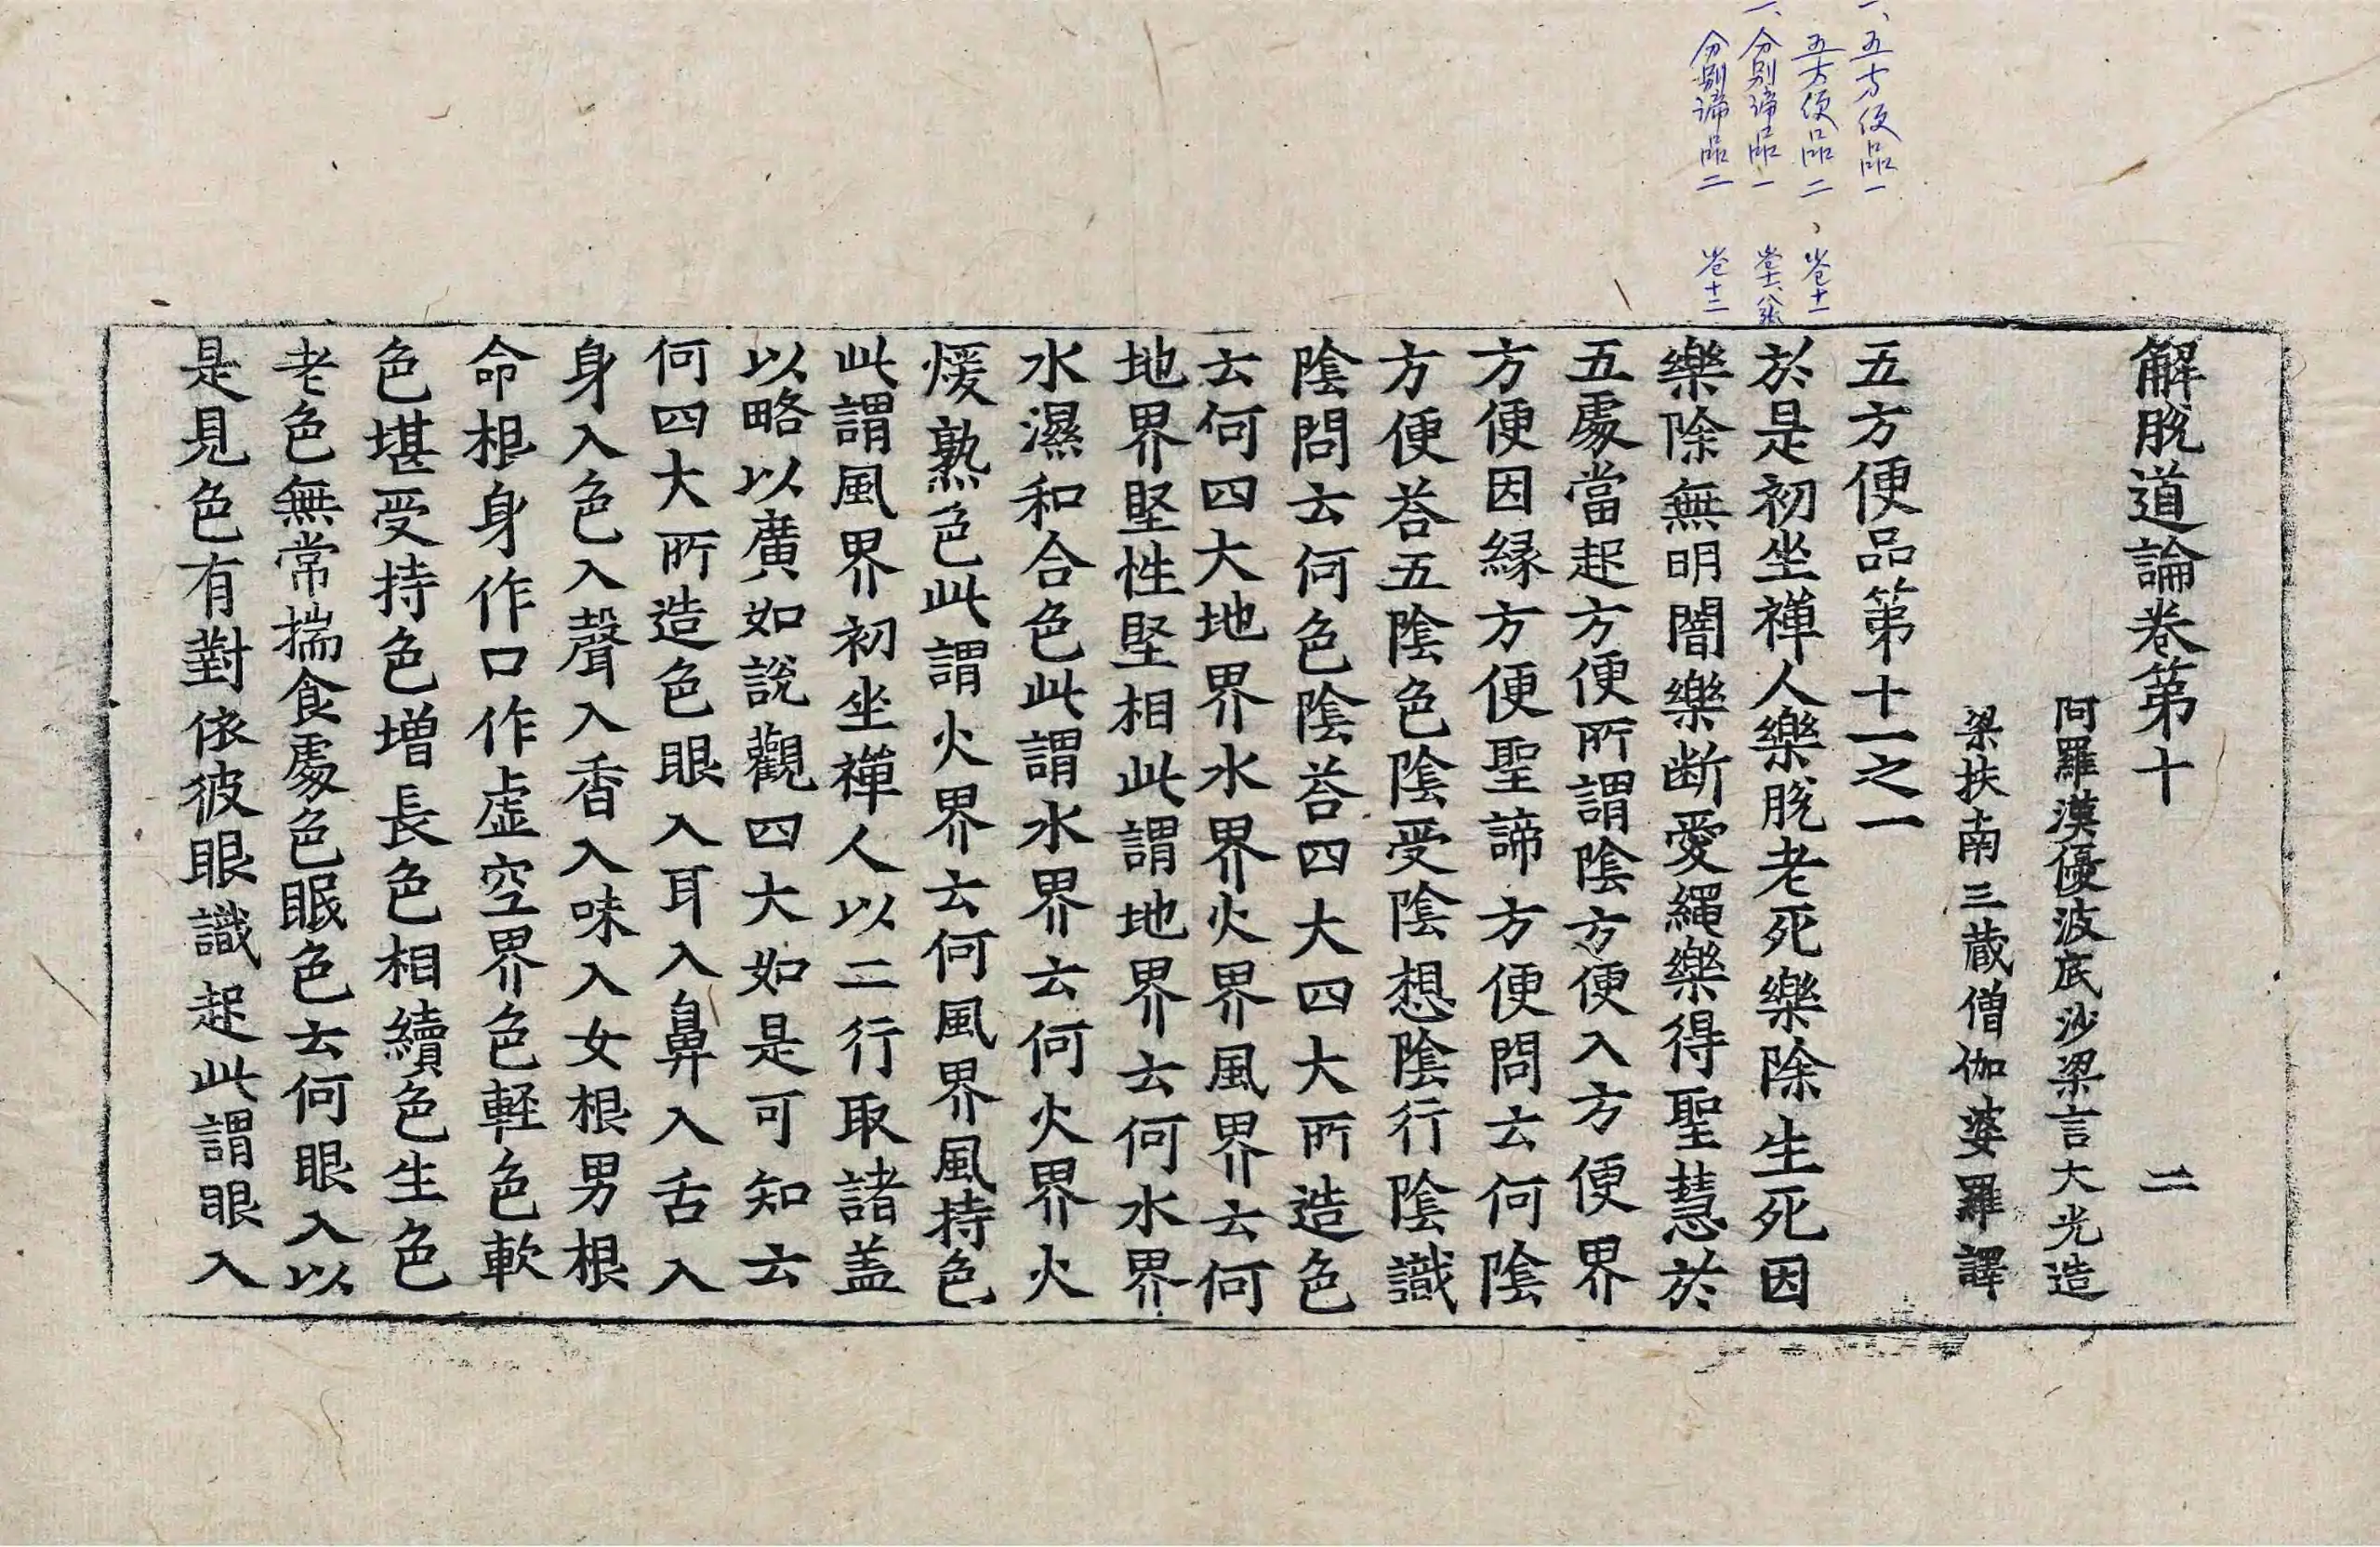 一、五方便品一
五方便品二、卷十一
一、分別諦品一 卷十一、八張
分別諦品二 卷十二
解脫道論卷第十 二
阿羅漢優波底沙梁言大光造
梁扶南三藏僧伽婆羅譯
五方便品第十一之一
於是初坐禪人樂脫老死樂除生死因
樂除無明闇樂断愛繩樂得聖慧於
五處當起方便所謂陰方便入方便界
方便因緣方便聖諦方便問云何陰
方便荅五陰色陰受陰想陰行陰識
陰問云何色陰荅四大四大所造色
云何四大地界水界火界風界云何
地界堅性堅相此謂地界云何水界
水濕和合色此謂水界云何火界火
煖熟色此謂火界云何風界風持色
此謂風界初坐禪人以二行取諸盖
以略以廣如說觀四大如是可知云
何四大所造色眼入耳入鼻入舌入
身入色入聲入香入味入女根男根
命根身作口作虛空界色軽色軟
色堪受持色增長色相續色生色
老色無常揣食處色眠色云何眼入以
是見色有對依彼眼識起此謂眼入